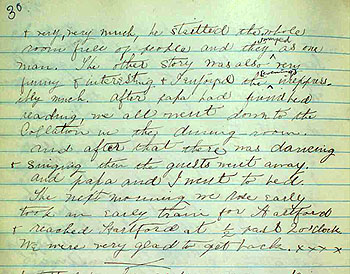 30
& very, very much, he startled the whole
room full of people and they jumped as one
man. The other story was also very
funny & interesting & I enjoyed the evening inexpres-
sibly much. After papa had finished
reading, we all went down to the
Collation in the dining room.
and after that there was dancing
& singing then the guests went away.
and papa and I went to bed.
The next morning we rose early
took an early train for Hartford
& reached Hartford at ½ past 2 o'clock
We were very glad to get back. x x x x